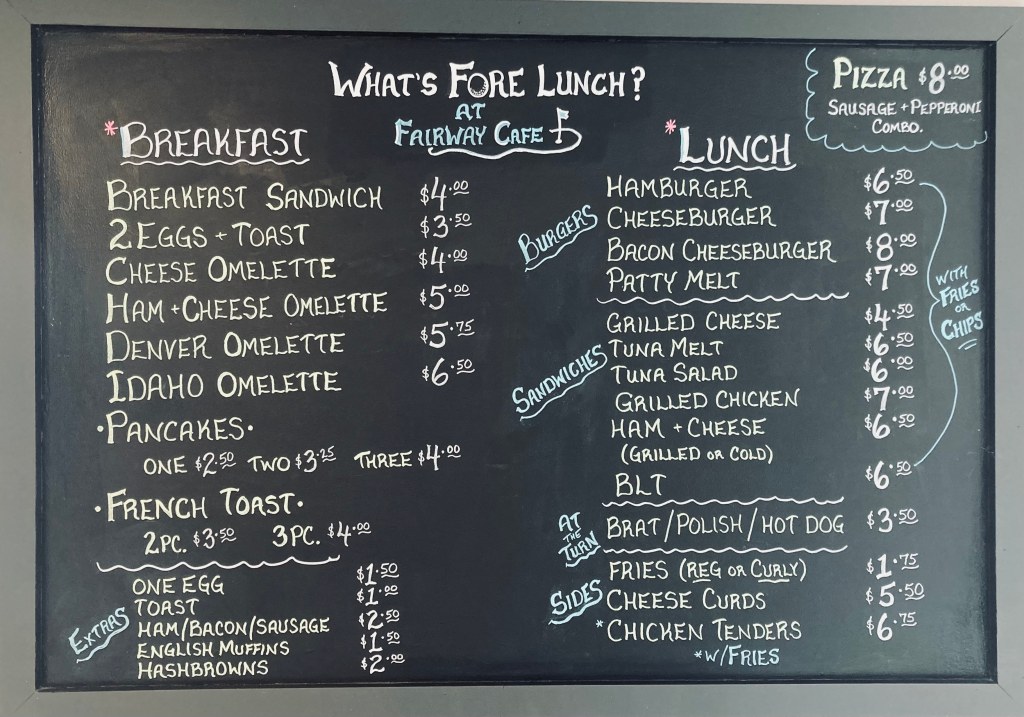 WHAT'S FORE LUNCH?
AT
FAIRWAY CAFE
PIZZA $8.00
SAUSAGE + PEPPERONI
COMBO.
*BREAKFAST
BREAKFAST SANDWICH $4.00
2 EGGS + TOAST $3.50
CHEESE OMELETTE $4.00
HAM + CHEESE OMELETTE $5.00
DENVER OMELETTE $5.75
IDAHO OMELETTE $6.50
•PANCAKES•
ONE $2.50 TWO $3.25 THREE $4.00
•FRENCH TOAST•
2PC. $3.50 3PC. $4.00
EXTRAS
ONE EGG $1.50
TOAST $1.00
HAM/BACON/SAUSAGE $2.50
ENGLISH MUFFINS $1.50
HASHBROWNS $2.00
*LUNCH
BURGERS
HAMBURGER $6.50
CHEESEBURGER $7.00
BACON CHEESEBURGER $8.00
PATTY MELT $7.00
SANDWICHES
GRILLED CHEESE $4.50
TUNA MELT $6.50
TUNA SALAD $6.00
GRILLED CHICKEN $7.00
HAM + CHEESE $6.50
(GRILLED OR COLD)
BLT $6.50
WITH
FRIES
OR
CHIPS
AT
THE
TURN
BRAT/POLISH/HOT DOG $3.50
SIDES
FRIES (REG OR CURLY) $1.75
CHEESE CURDS $5.50
*CHICKEN TENDERS $6.75
*W/FRIES